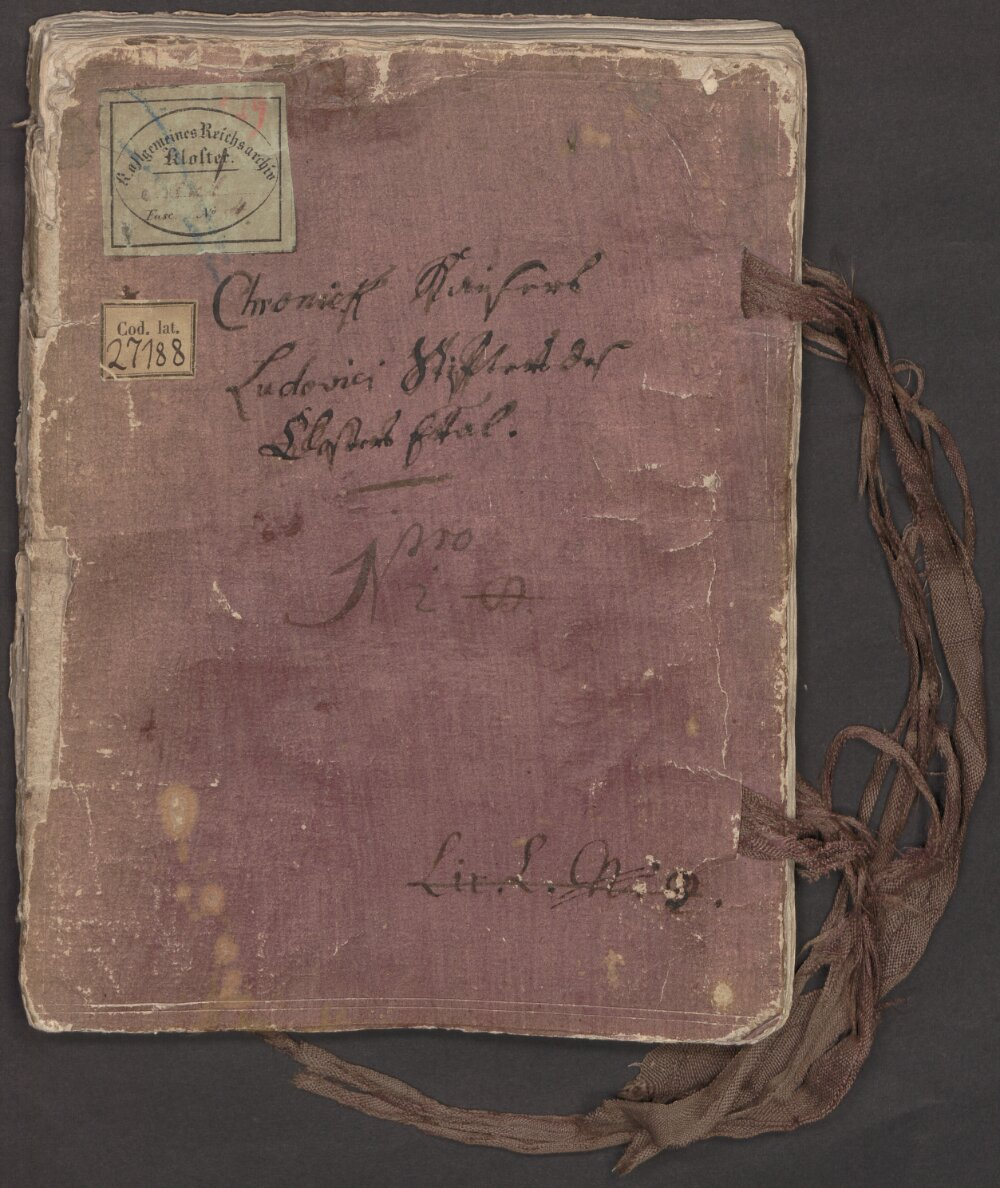 K. allgemeines Reichsarchiv
Kloster.
Fasc. No
Cod. lat.
27188
Chronick Kaysers
Ludovici Stiffters des
Closters Ettal.
Nro
2
Lit. L. N. 9.